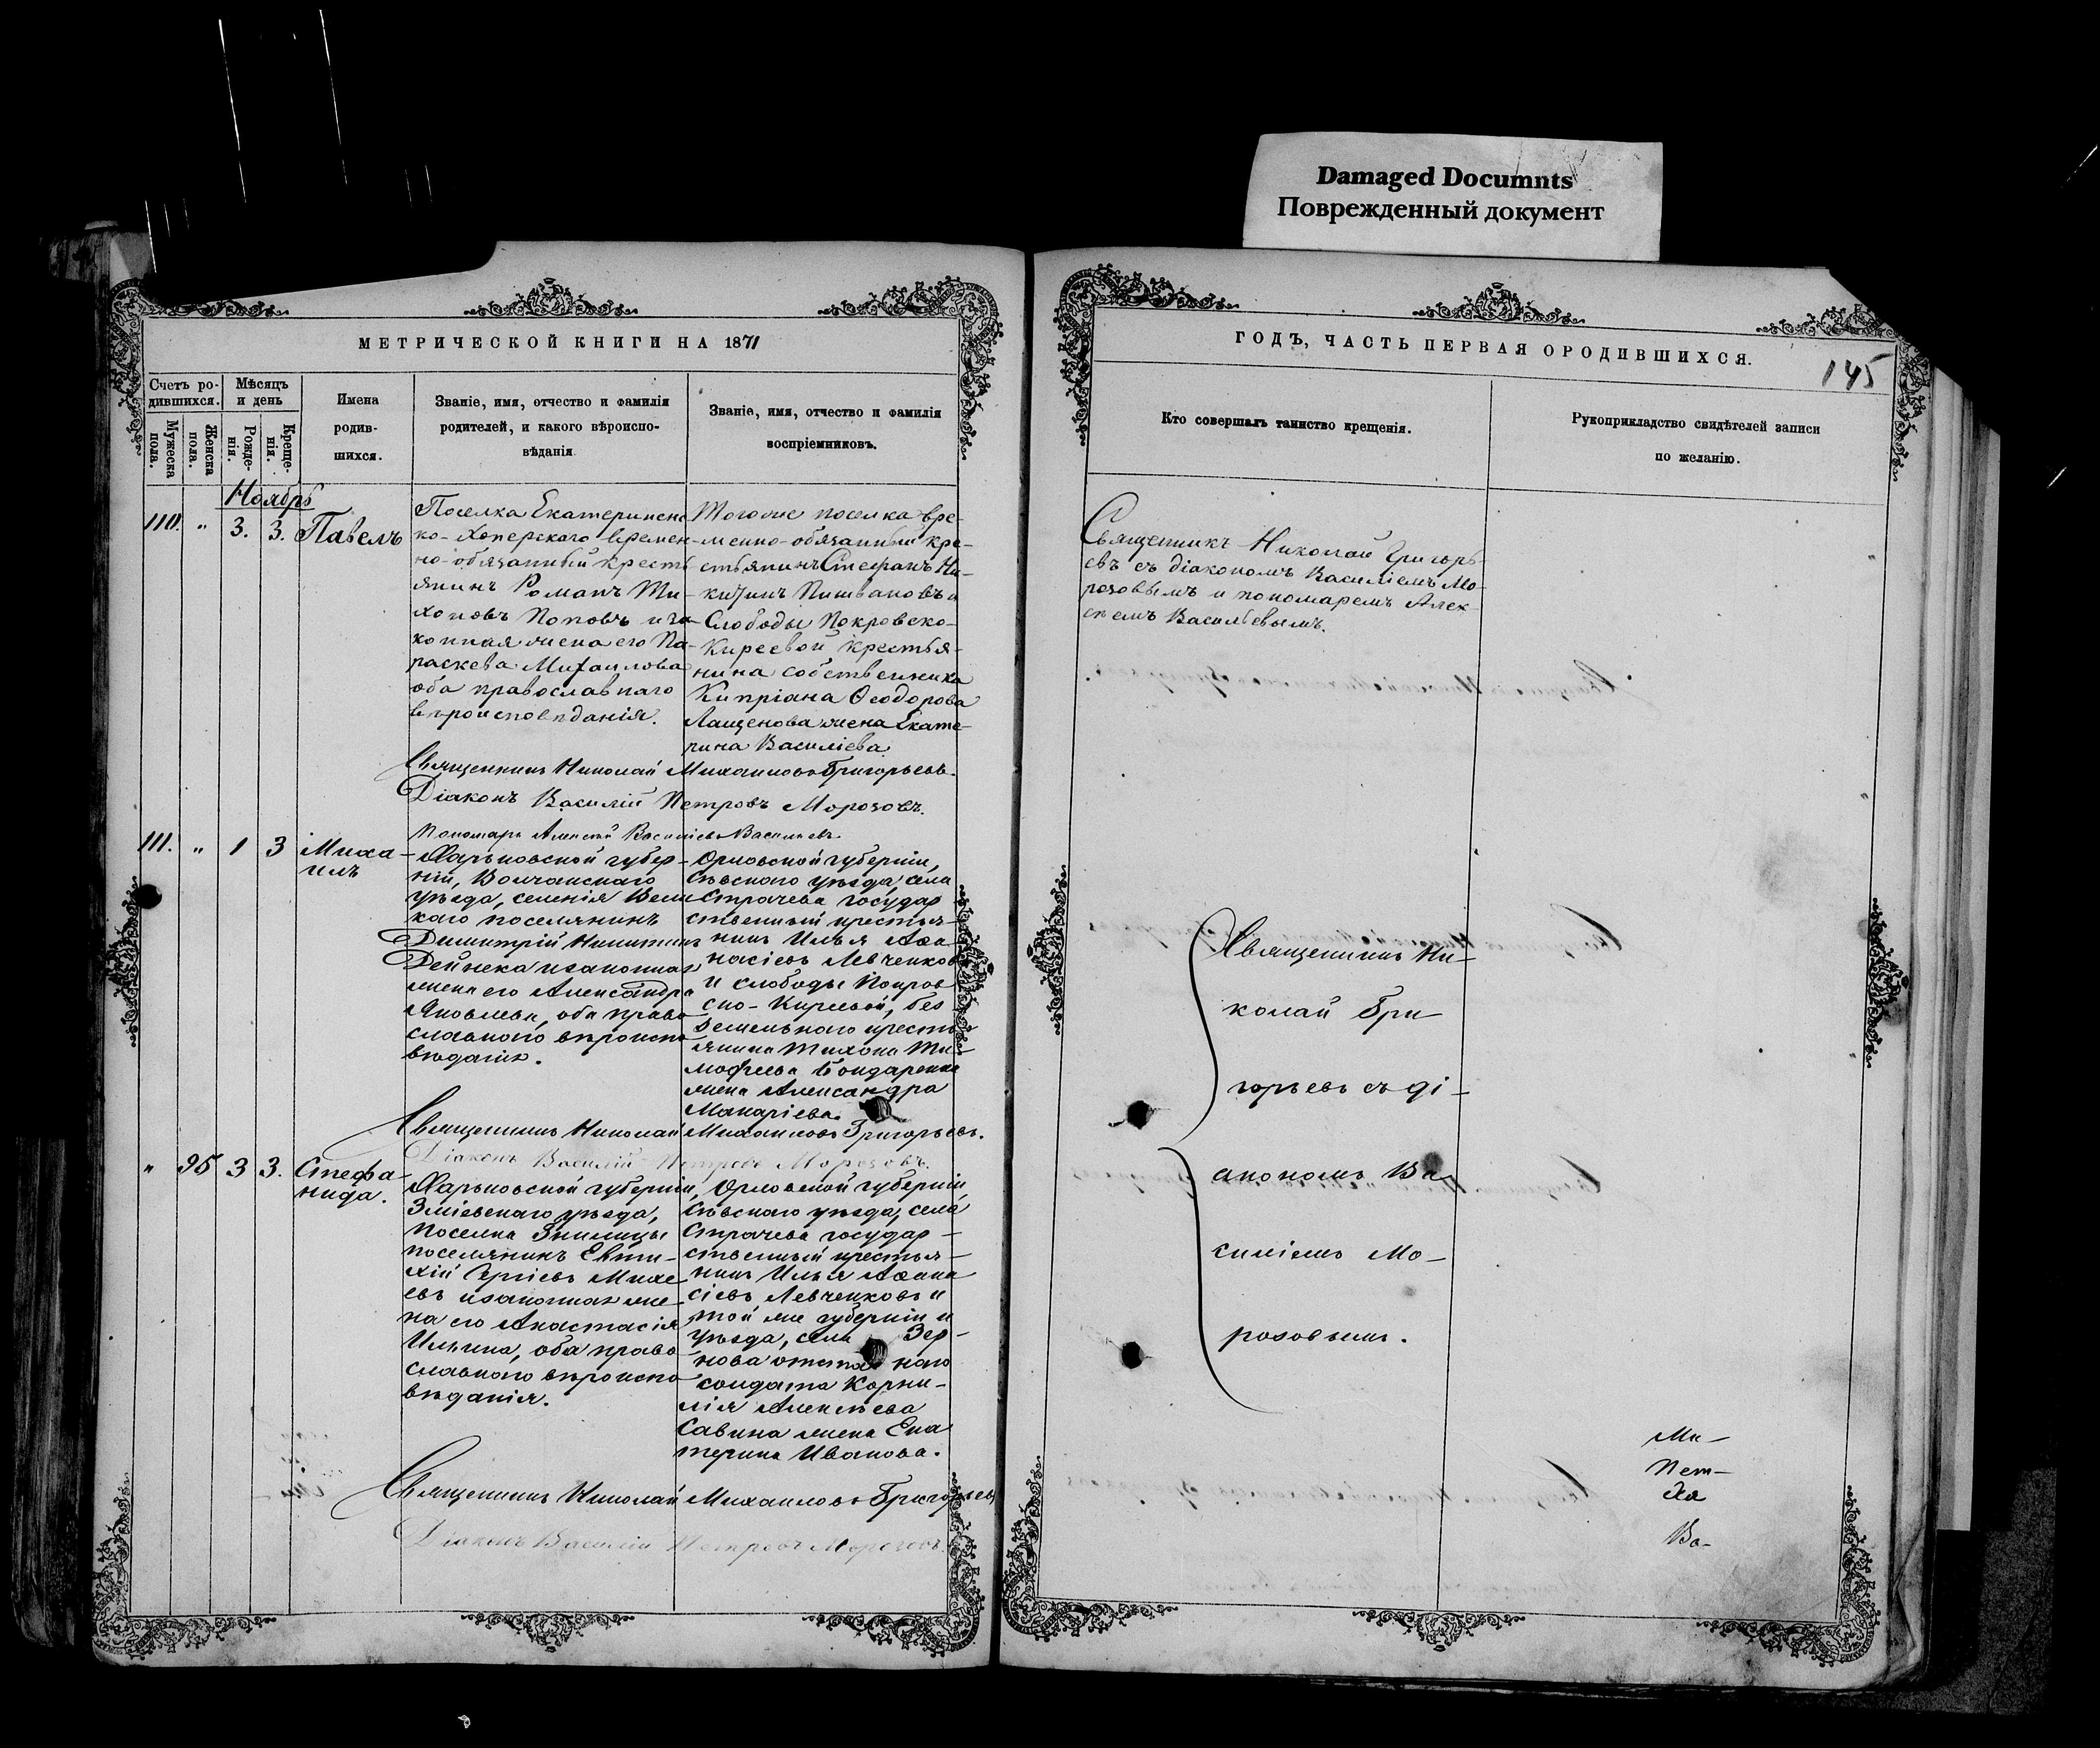 Damaged Documnts
Поврежденный документ
МЕТРИЧЕСКОЙ КНИГИ НА 1871
Счетъ ро-
дившихся.
Мѣсяцъ
и день
Мужеска
пола.
Женска
пола.
Рожде-
нія.
Креще-
нія.
Имена
родив-
шихся.
Званіе, имя, отчество и фамилія
родителей, и какого вѣроиспо-
вѣданія.
Званіе, имя, отчество и фамилія
воспріемниковъ.
Ноябрь
110. " 3. 3. Павелъ
Поселка Екатеринено
ко-Хоперскаго времен-
но-обязанный кресть
янинъ Романъ Ти-
хоновъ Поповъ и за-
конная жена его Па-
раскева Михаилова
оба православнаго
вѣроисповѣданія.
Тогоже поселка вре-
менно-обязанный кре-
стьянинъ Стефанъ Ни-
китинъ и
Слободы Покровско-
Киреевой крестья-
нина собственника
Кипріана Ѳеодорова
Лащенова жена Екате-
рина Василіева
Священникъ Николай Михаиловъ Григорьевъ.
Діаконъ Василій Петровъ Морозовъ.
Пономарь Алексѣй Василіевъ Васильевъ
111. " 1 3 Миха-
илъ
Харьковской губер-
ніи, Волчанскаго
уѣзда, селенія Вели
каго поселянинъ
Димитрій Никитинъ
Дейнека и законная
жена его Александра
Яковлева, оба право
славнаго вѣроиспо
вѣданія.
Орловской губерніи,
Сѣвскаго уѣзда, села
Страчева государ
ственный крестья-
нинъ Илья Аѳа
насіевъ Левченковъ
и слободы Покров
ско-Киреевой, без
земельнаго кресть
янина Тихона Ти-
моѳеева Бондаренка
жена Александра
Макаріева.
Священникъ Николай Михаиловъ Григорьевъ.
Діаконъ Василій Петровъ Морозовъ.
" 95 3 3. Стефа-
нида.
Харьковской губерніи,
Зміевскаго уѣзда,
поселка Знилицы
поселянинъ Евти-
хій Сергіевъ Михе
евъ и законная же
на его Анастасія
Ильина, оба право
славнаго вѣроиспо
вѣданія.
Орловской губерніи
Сѣвскаго уѣзда, села
Страчева государ-
ственный крестья-
нинъ Илья Аѳана
сіевъ Левченковъ и
той же губерніи и
уѣзда, села Зер-
нова отставнаго
солдата Корни-
лія Алексѣева
Савина жена Ека
терина Иванова.
Священникъ Николай Михаиловъ Григорьевъ
Діаконъ Василій Петровъ Морозовъ.
ГОДЪ, ЧАСТЬ ПЕРВАЯ О РОДИВШИХСЯ.
145
Кто совершалъ таинство крещенія.
Рукоприкладство свидѣтелей записи
по желанію.
Священникъ Николай Григорь-
евъ съ діакономъ Василіемъ Мо-
розовымъ и пономаремъ Алек-
сѣемъ Васильевымъ.
Священникъ Ни-
колай Гри
горьевъ съ ді-
акономъ Ва
силіемъ Мо-
розовымъ.
Ми-
Пет-
Хя
Ва-